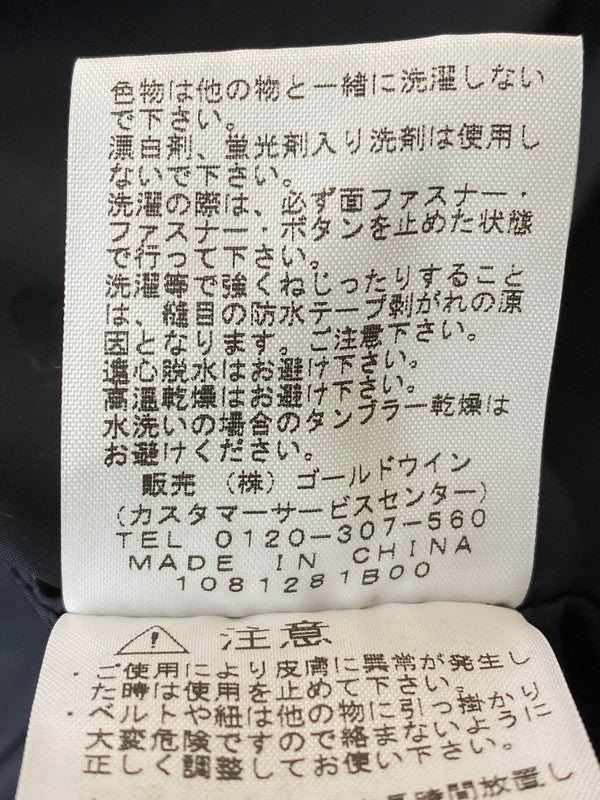 色物は他の物と一緒に洗濯しない
で下さい。
漂白剤、蛍光剤入り洗剤は使用し
ないで下さい。
洗濯の際は、必ず面ファスナー・
ファスナー・ボタンを止めた状態
で行って下さい。
洗濯等で強くねじったりすること
は、縫目の防水テープ剥がれの原
因となります。ご注意下さい。
遠心脱水はお避け下さい。
高温乾燥はお避け下さい。
水洗いの場合のタンブラー乾燥は
お避けください。
販売 (株) ゴールドウイン
(カスタマーサービスセンター)
TEL 0120-307-560
MADE IN CHINA
1081281B00
注意
・ご使用により皮膚に異常が発生し
た時は使用を止めて下さい。
・ベルトや紐は他の物に引っ掛かり
大変危険ですので絡まないように
正しく調整してお使い下さい。
長時間放置し